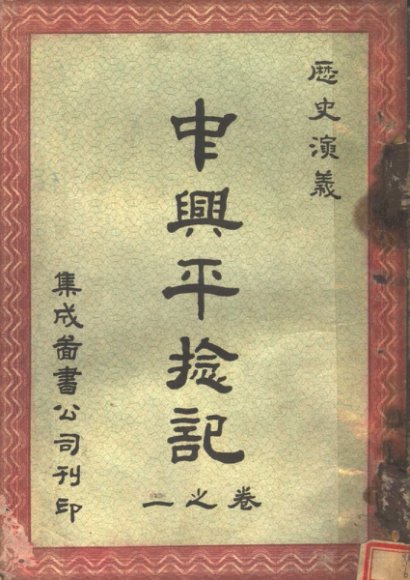 歷史演義
中興平捻記
卷之一
集成圖書公司刊印